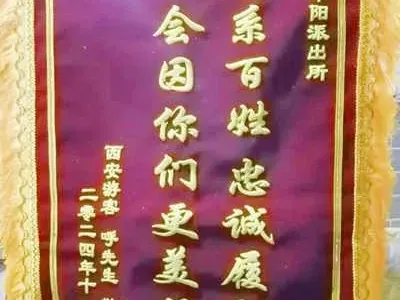 阳派出所
系百姓忠诚履
会因你们更美
西安游客 呼先生
二零二四年十